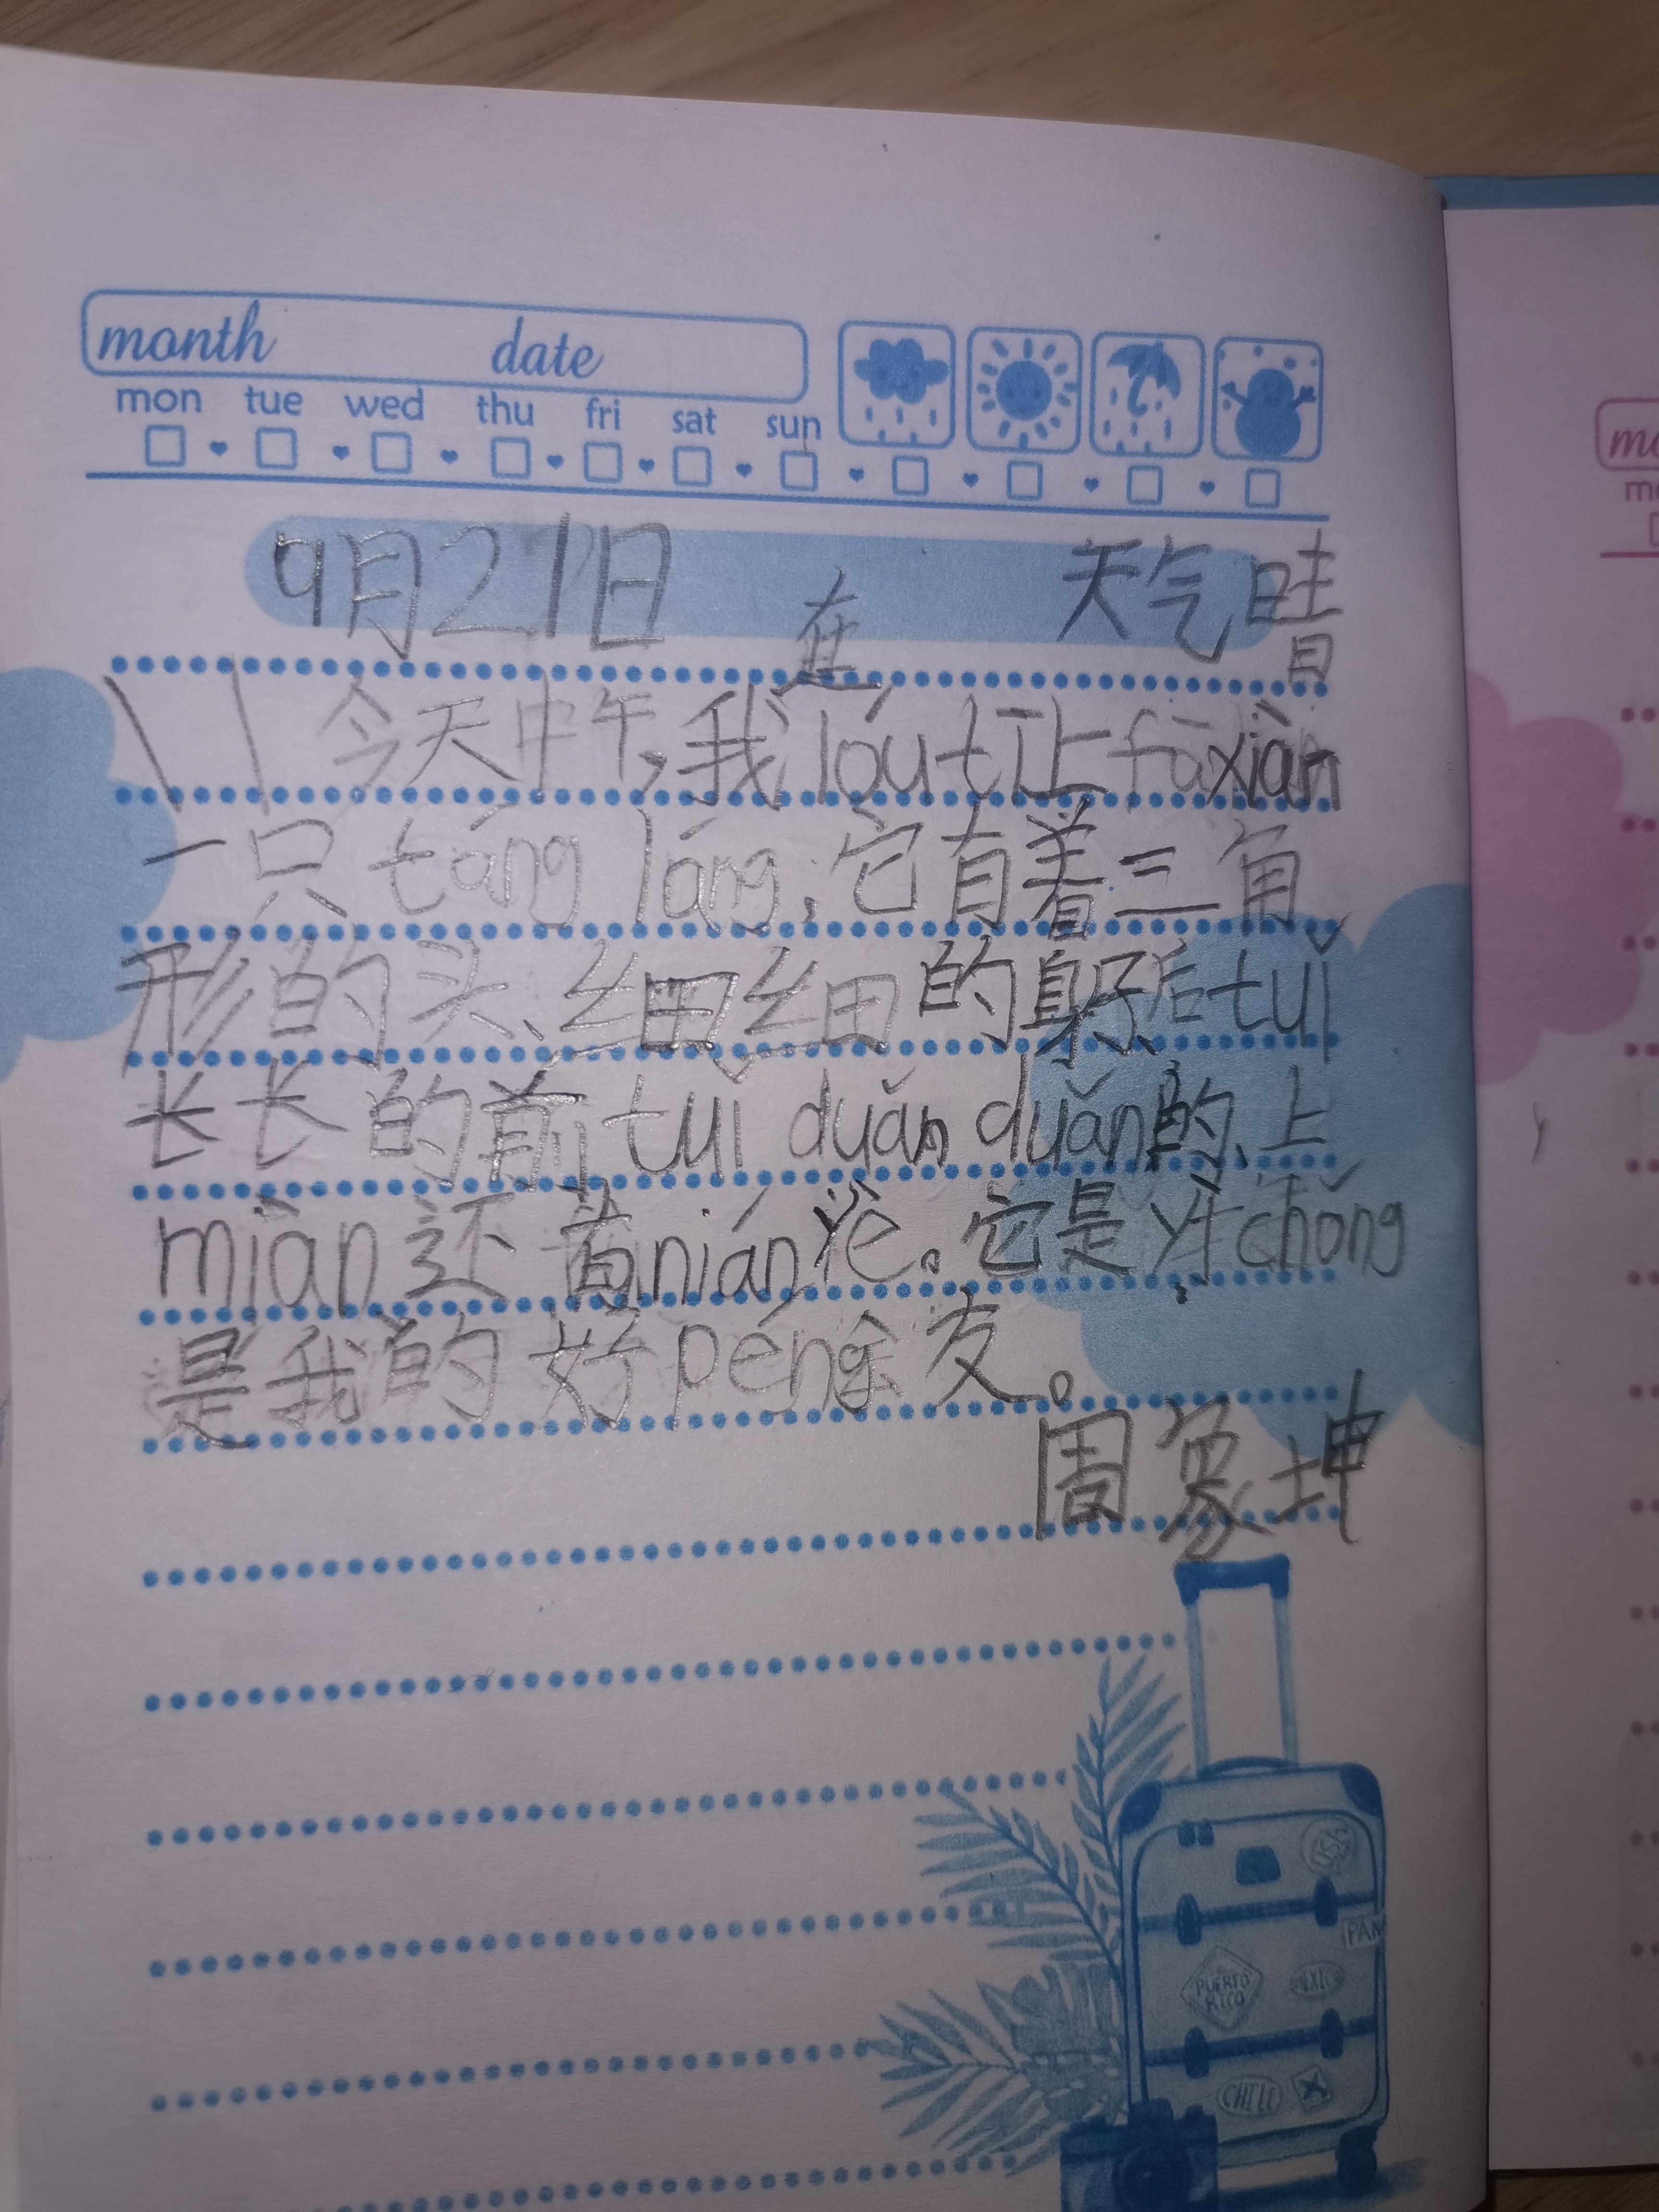 month date
mon tue wed thu fri sat sun
9月21日 天气晴
在
今天中午,我lóut让fāxiàn
一只táng láng,它有着三角
形的头、细细的身子、后tuǐ
长长的前tuǐ duǎn duǎn的、上
miàn还有nián yè。它是yì chóng
是我的好péng友。
周象坤
PUERTO RICO
CHILE